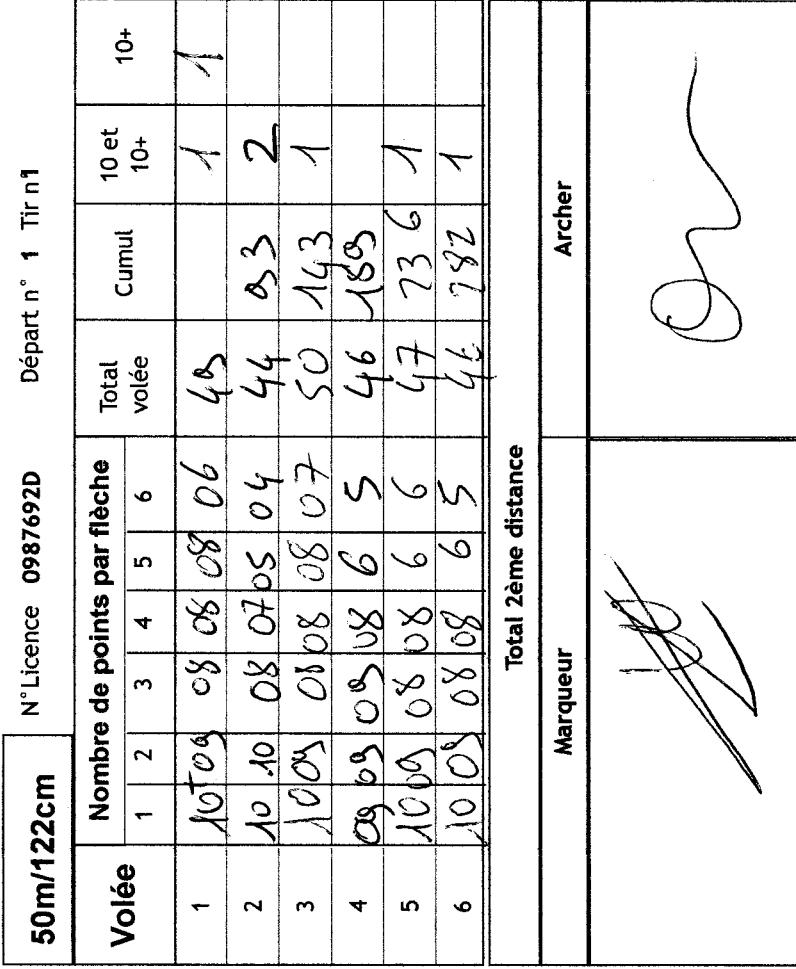 50m/122cm N°Licence 0987692D Départ n° 1 Tir n1
Volée Nombre de points par flèche Total volée Cumul 10 et 10+ 10+
1 2 3 4 5 6
1 10+ 09 08 08 08 06 49 1 1
2 10 10 08 07 05 04 44 93 2
3 10 09 08 08 08 07 50 143 1
4 09 09 09 08 6 5 46 189
5 10 09 08 08 6 6 47 236 1
6 10 09 08 08 6 5 46 282 1
Total 2ème distance
Marqueur Archer